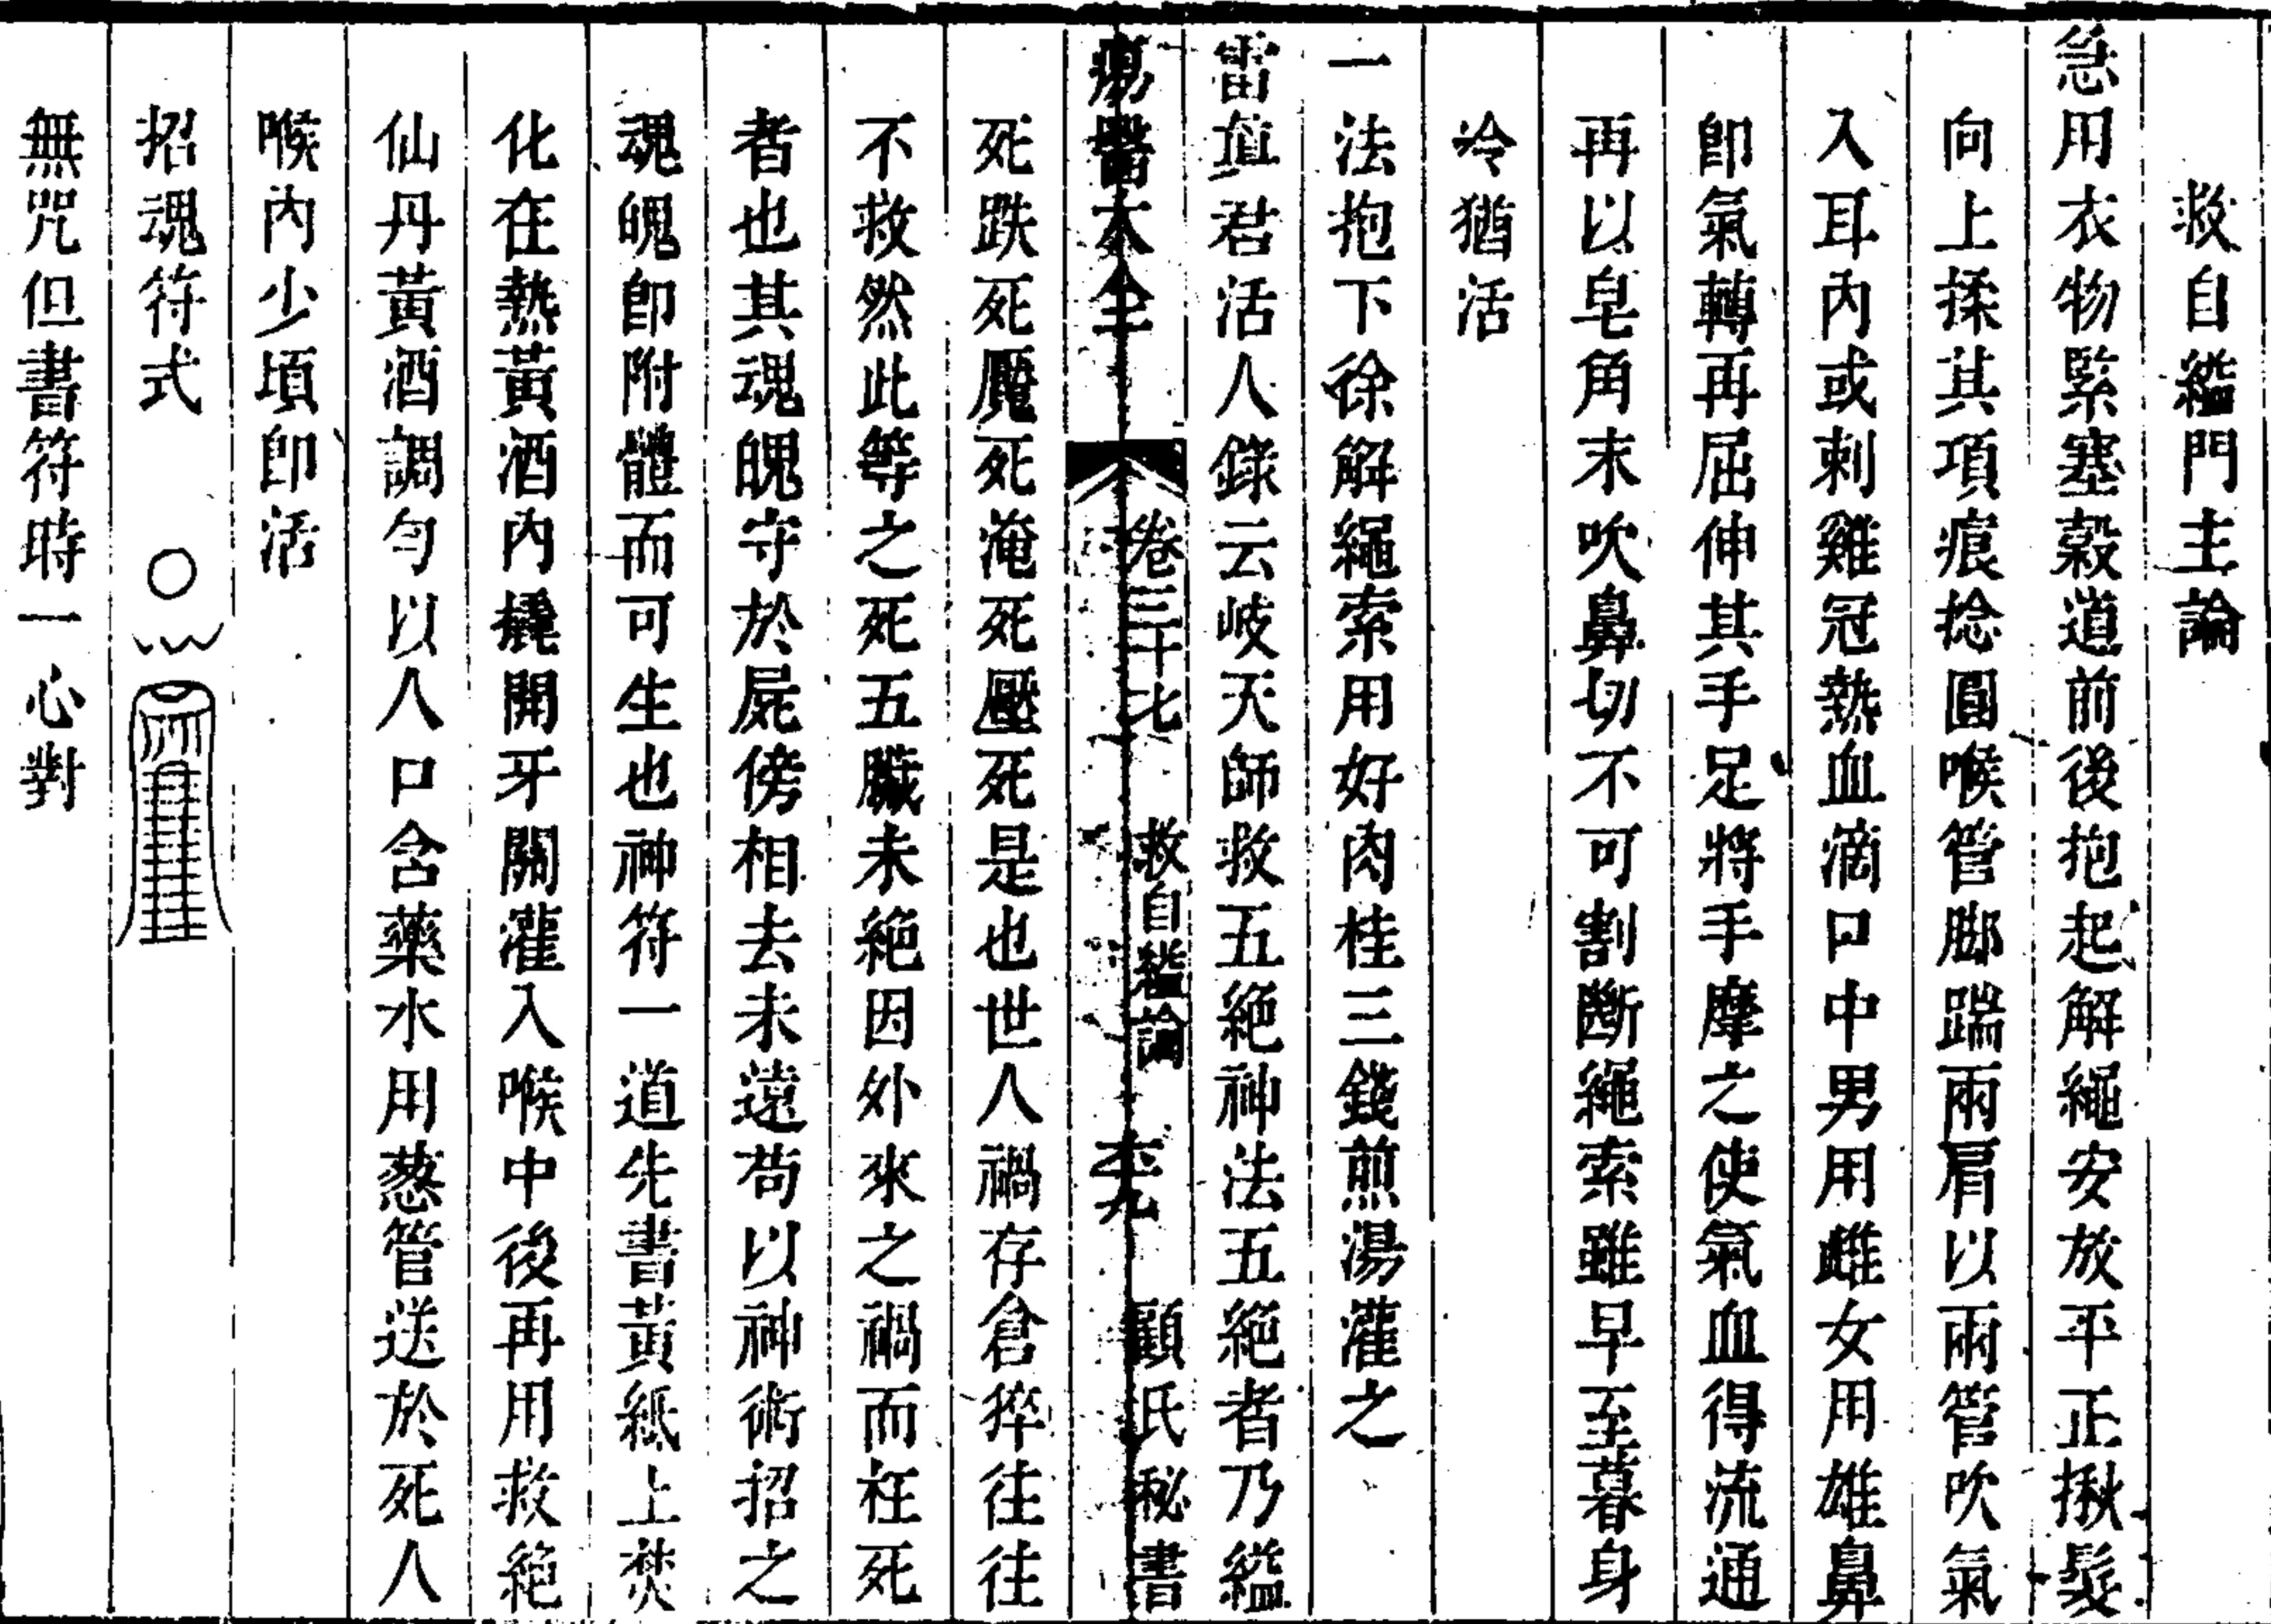 救自縊門主論
急用衣物緊塞穀道前後抱起解繩安放平正揪髮
向上揉其項痕捻圓喉管脚踹兩肩以兩管吹氣
入耳內或刺雞冠熱血滴口中男用雌女用雄鼻
卽氣轉再屈伸其手足將手摩之使氣血得流通
再以皂角末吹鼻切不可割斷繩索雖早至暮身
冷猶活
一法抱下徐解繩索用好肉桂三錢煎湯灌之
雷真君活人錄云岐天師救五絕神法五絕者乃縊
瘍醫大全 卷三十七 救自縊論 顧氏秘書
死跌死魘死淹死壓死是也世人禍存倉猝往往
不救然此等之死五臟未絕因外來之禍而枉死
者也其魂魄守於屍傍相去未遠苟以神術招之
魂魄卽附體而可生也神符一道先書黃紙上焚
化在熱黃酒內撬開牙關灌入喉中後再用救絕
仙丹黃酒調勻以人口含藥水用葱管送於死人
喉內少頃卽活
招魂符式
無咒但書符時一心對